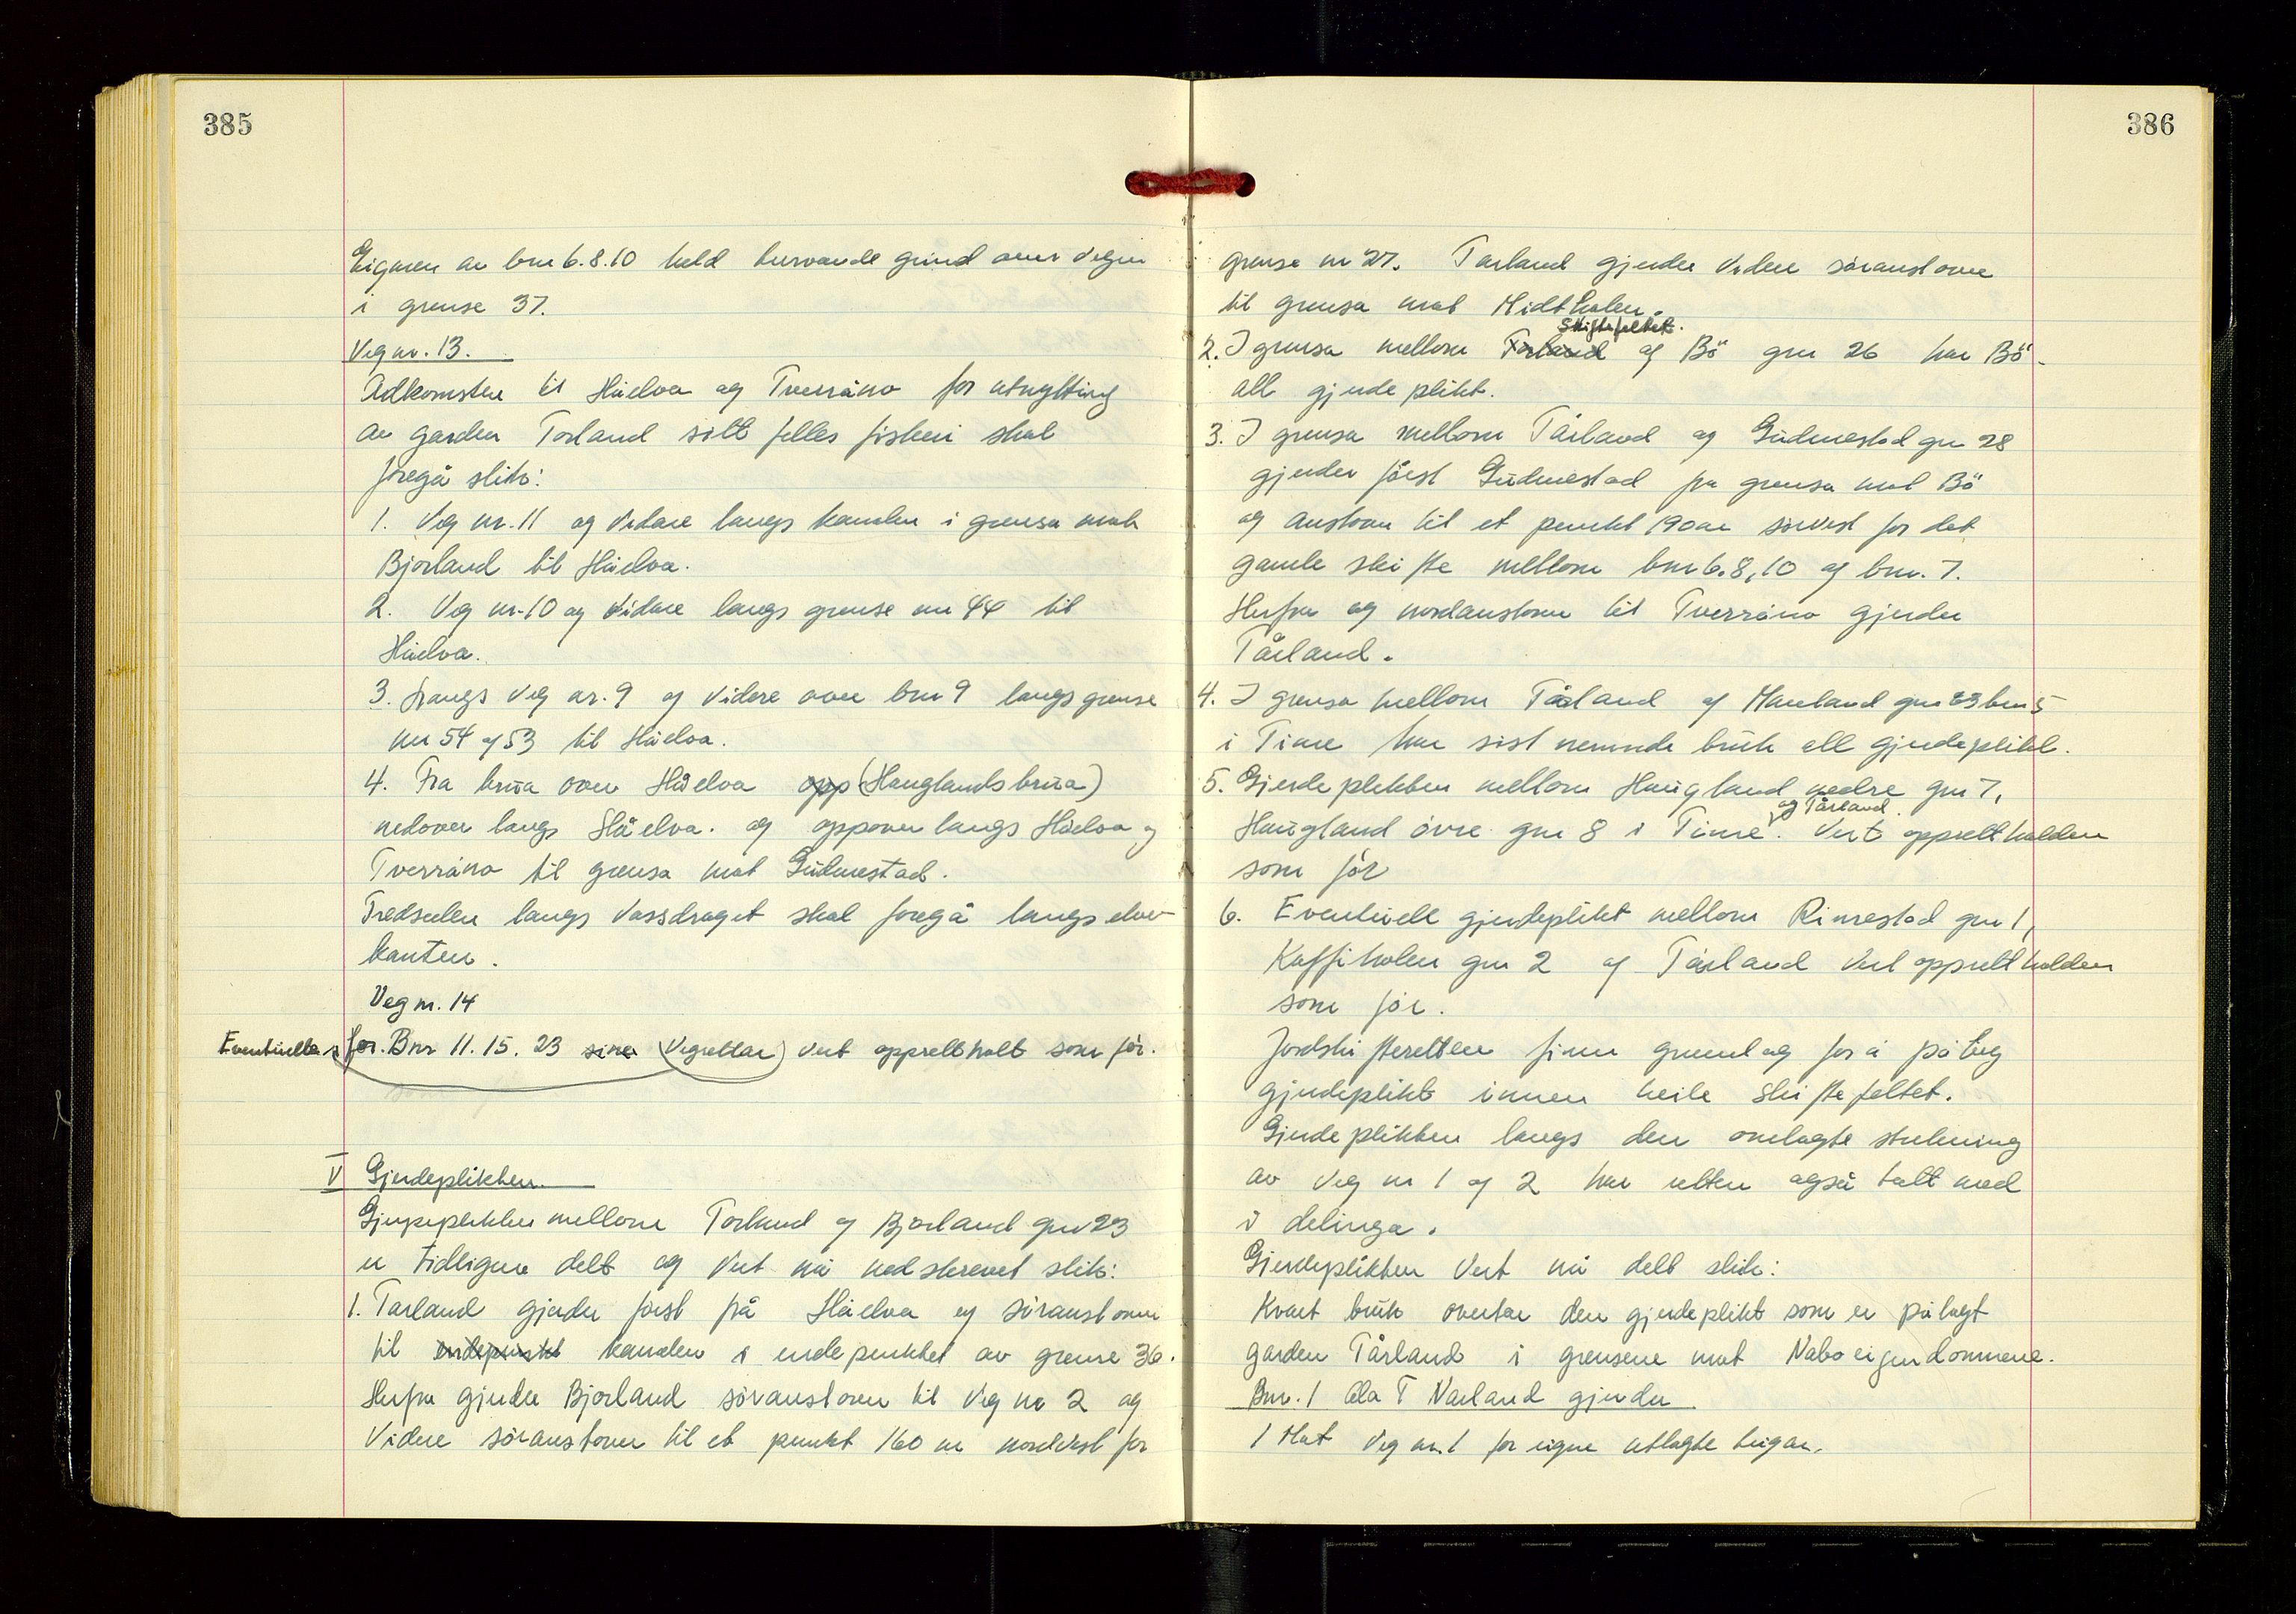 385
Eigaren av bnr 6.8.10 held hervande grind over vegen
i grense 37.
Veg nr. 13.
Adkomsten til Håelva og Tverråna for utnytting
av garden Torland sitt felles fiskeri skal
foregå slik:
1. Veg nr. 11 og vidare langs kanalen i grensa mot
Bjorland til Håelva.
2. Veg nr. 10 og vidare langs grense nr 44 til
Håelva.
3. Langs veg nr. 9 og videre over bnr 9 langs grense
nr 54 og 53 til Håelva.
4. Fra brua over Håelva opp (Hauglandsbrua)
nedover langs Håelva. og oppover langs Håelva og
Tverråna til grensa mot Gudmestad.
Fredselen langs vassdraget skal foregå langs elve-
kanten.
Veg nr. 14
Eventuelle for Bnr 11. 15. 23 sine (vegrettar) vert oppretthalt som før.
V Gjerdeplikten.
Gjerdeplikten mellom Torland og Bjorland gnr 23
er tidligere delt og vert nå nedskrevet slik:
1. Tarland gjerder først frå Håelva og søraustover
til endepunktet kanalen i endepunktet av grense 36.
Herfra gjerder Bjorland søraustover til veg nr 2 og
videre søraustover til et punkt 160 m nordvest for
386
grense nr 27. Tarland gjerder videre søraustover
til grensa mot Midtholen.
Skiftefeltet.
2. I grensa mellom Torland og Bö gnr 26 har Bö
all gjerdeplikt.
3. I grensa mellom Tårland og Gudmestad gnr 28
gjerder først Gudmestad fra grensa mot Bö
og austover til et punkt 190 m sørvest for det
gamle skifte mellom bnr 6.8,10 og bnr. 7.
Herfra og nordaustover til Tverråna gjerder
Tårland.
4. I grensa mellom Tårland og Haneland gnr 23 bnr 5
i Time har sist nemnde bruk all gjerdeplikt.
5. Gjerdeplikten mellom Haugland nedre gnr 7,
og Tårland.
Haugland övre gnr 8 i Time. Vert oppretthalden
som før
6. Eventuell gjerdeplikt mellom Rimestad gnr 1,
Kaffiholen gnr 2 og Tårland vert oppretthalden
som før.
Jordskifteretten finn grunnlag for å påleg
gjerdeplikt innen heile skiftefeltet.
Gjerdeplikten langs den omlagte strekning
av veg nr 1 og 2 har retten også tatt med
i delinga.
Gjerdeplikten vert nå delt slik:
Kvart bruk overtar den gjerdeplikt som er pålagt
garden Tårland i grensene mot Naboeigendommene.
Bnr. 1 Ola T Narland gjerder
1 Mot veg nr. 1 for eigne utlagte teigar.